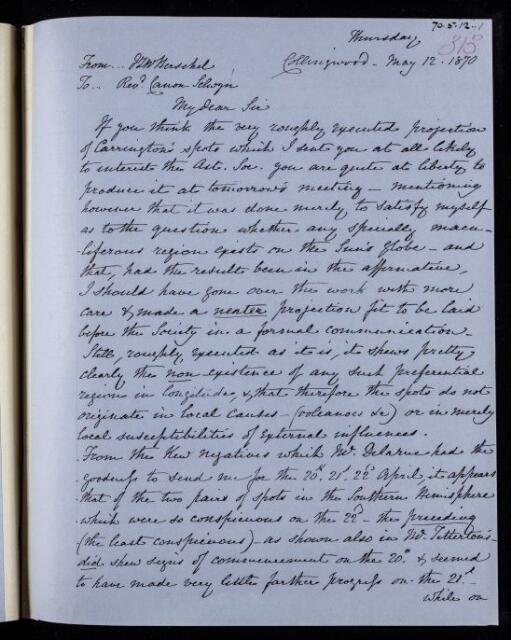 70.5.12.1
Thursday
313
From.. JFW Herschel
Collingwood. May 12. 1870
To.. Revd. Canon Selwyn
My dear Sir
If you think the very roughly executed projection
of Carrington's spots which I sent you at all likely
to interest the Ast. Soc. you are quite at liberty to
produce it at tomorrow's meeting – mentioning
however that it was done merely to satisfy myself
as to the question whether any specially macu-
liferous region exists on the Sun's globe – and
that, had the result been in the affirmative,
I should have gone over the work with more
care & made a neater projection fit to be laid
before the Society in a formal communication –
Still, roughly executed as it is, it shews pretty
clearly the non-existence of any such preferential
regions in longitude, & that therefore the spots do not
originate in local causes – (volcanoes &c) or in merely
local susceptibilities of external influences.
From the Kew negatives which Mr. Delarue had the
goodness to send me for the 20th. 21st. 22d April it appears
that of the two pairs of spots in the Southern Hemisphere
which were so conspicuous on the 22d – the preceding
(the least conspicuous) – as shown also in Mr. Titterton's –
did shew signs of commencement on the 20th. & seemed
to have made very little farther progress on the 21st. –
while on